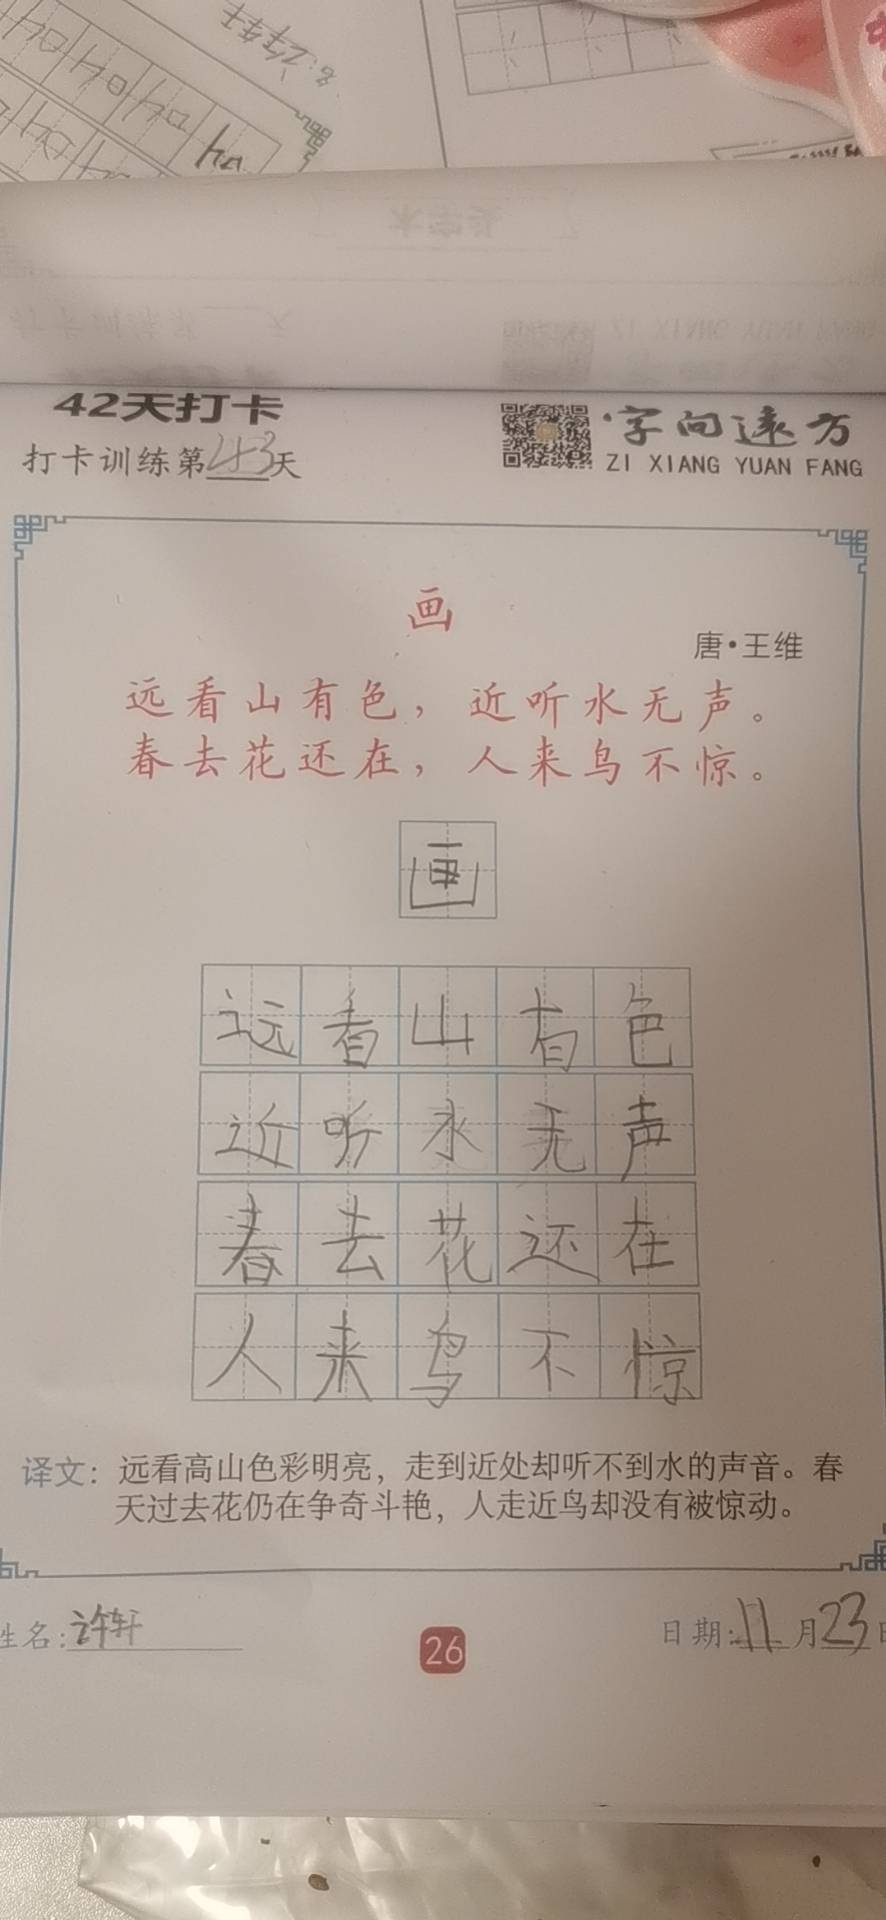 42天打卡
字向远方
打卡训练第43天
ZI XIANG YUAN FANG
画
唐·王维
远看山有色，近听水无声。
春去花还在，人来鸟不惊。
画
远看山有色
近听水无声
春去花还在
人来鸟不惊
译文：远看高山色彩明亮，走到近处却听不到水的声音。春
天过去花仍在争奇斗艳，人走近鸟却没有被惊动。
姓名：许轩
26
日期：11月23日